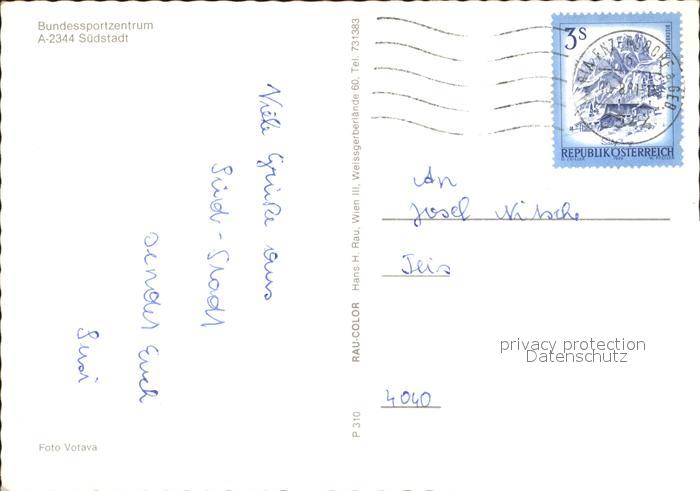 Bundessportzentrum
A-2344 Südstadt
Viele Grüße aus
Süd-Stadt
sendet Euch
Susi
Foto Votava
P 310 RAU-COLOR Hans H. Rau, Wien III, Weissgerberlände 60, Tel. 731383
3 S
REPUBLIK ÖSTERREICH
An
Josef Nitsche
privacy protection
Datenschutz
4040